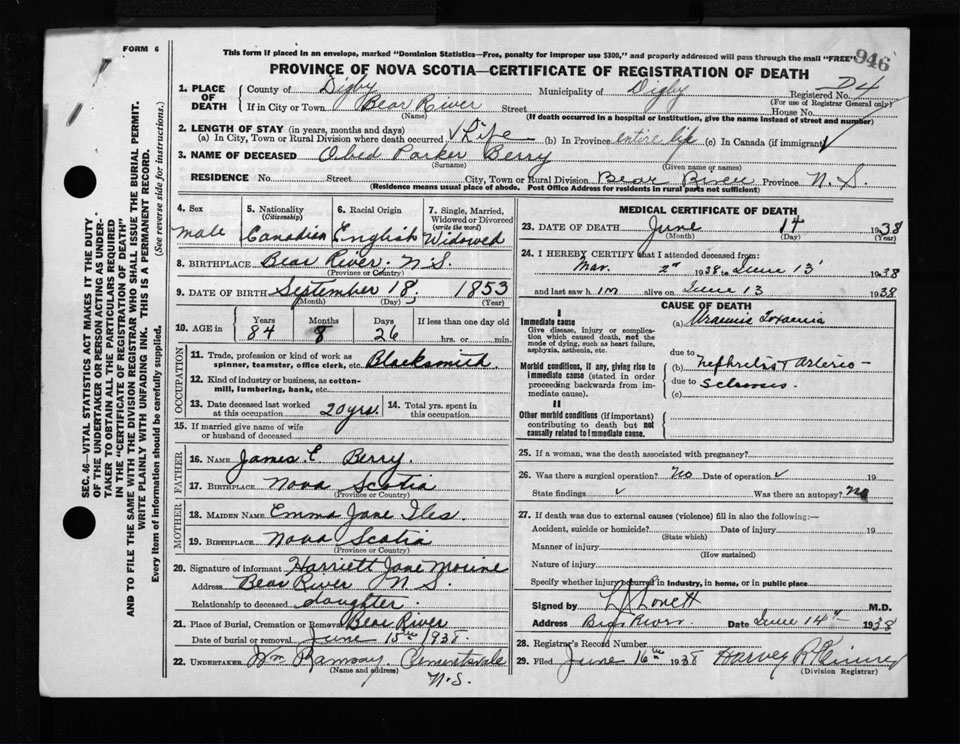 FORM 6
This form if placed in an envelope, marked "Dominion Statistics—Free, penalty for improper use $300," and properly addressed will pass through the mail "FREE"
946
PROVINCE OF NOVA SCOTIA—CERTIFICATE OF REGISTRATION OF DEATH
SEC. 46—VITAL STATISTICS ACT MAKES IT THE DUTY
OF THE UNDERTAKER OR PERSON ACTING AS UNDER-
TAKER TO OBTAIN ALL THE PARTICULARS REQUIRED
IN THE "CERTIFICATE OF REGISTRATION OF DEATH"
AND TO FILE THE SAME WITH THE DIVISION REGISTRAR WHO SHALL ISSUE THE BURIAL PERMIT.
WRITE PLAINLY WITH UNFADING INK. THIS IS A PERMANENT RECORD.
Every item of information should be carefully supplied. (See reverse side for instructions.)
1. PLACE OF DEATH County of Digby Municipality of Digby Registered No. D4
(For use of Registrar General only)
If in City or Town Bear River Street House No.
(Name) (If death occurred in a hospital or institution, give the name instead of street and number)
2. LENGTH OF STAY (in years, months and days)
(a) In City, Town or Rural Division where death occurred √ Life (b) In Province entire life (c) In Canada (if immigrant) √
3. NAME OF DECEASED Obed Parker Berry
(Surname) (Given name or names)
RESIDENCE No. Street City, Town or Rural Division Bear River Province N.S.
(Residence means usual place of abode. Post Office Address for residents in rural parts not sufficient)
4. Sex male
5. Nationality (Citizenship) Canadian
6. Racial Origin English
7. Single, Married, Widowed or Divorced (write the word) Widowed
8. BIRTHPLACE Bear River. N.S.
(Province or Country)
9. DATE OF BIRTH September 18, 1853
(Month) (Day) (Year)
10. AGE in Years 84 Months 8 Days 26 If less than one day old
hrs. or min.
OCCUPATION
11. Trade, profession or kind of work as spinner, teamster, office clerk, etc. Blacksmith
12. Kind of industry or business, as cotton-mill, lumbering, bank, etc.
13. Date deceased last worked at this occupation 20 yrs.
14. Total yrs. spent in this occupation
15. If married give name of wife or husband of deceased
FATHER
16. NAME James E. Berry.
17. BIRTHPLACE Nova Scotia
(Province or Country)
MOTHER
18. MAIDEN NAME Emma Jane Iles.
19. BIRTHPLACE Nova Scotia
(Province or Country)
20. Signature of informant Harriett Jane Morine
Address Bear River N.S.
Relationship to deceased daughter.
21. Place of Burial, Cremation or Removal Bear River
Date of burial or removal June 15th 1938.
22. UNDERTAKER Wm Ramsay, Clementsvale
(Name and address)
N.S.
MEDICAL CERTIFICATE OF DEATH
23. DATE OF DEATH June 14 1938
(Month) (Day) (Year)
24. I HEREBY CERTIFY that I attended deceased from:
Mar. 2nd 1938 to June 13 1938
and last saw him alive on June 13 1938
CAUSE OF DEATH
I
Immediate cause
Give disease, injury or complication which caused death, not the mode of dying, such as heart failure, asphyxia, asthenia, etc.
(a) Uraemic Toxaemia
due to
Morbid conditions, if any, giving rise to immediate cause (stated in order proceeding backwards from immediate cause).
(b) Nephritis + Arterio-
due to sclerosis
(c)
II
Other morbid conditions (if important) contributing to death but not causally related to immediate cause.
25. If a woman, was the death associated with pregnancy?
26. Was there a surgical operation? No Date of operation √ 19
State findings √ Was there an autopsy? No
27. If death was due to external causes (violence) fill in also the following:—
Accident, suicide or homicide? Date of injury 19
(State which)
Manner of injury
(How sustained)
Nature of injury
Specify whether injury occurred in industry, in home, or in public place
Signed by Lovett M.D.
Address Bear River Date June 14th 1938
28. Registrar's Record Number
29. Filed June 16th 1938 Harvey R
(Division Registrar)